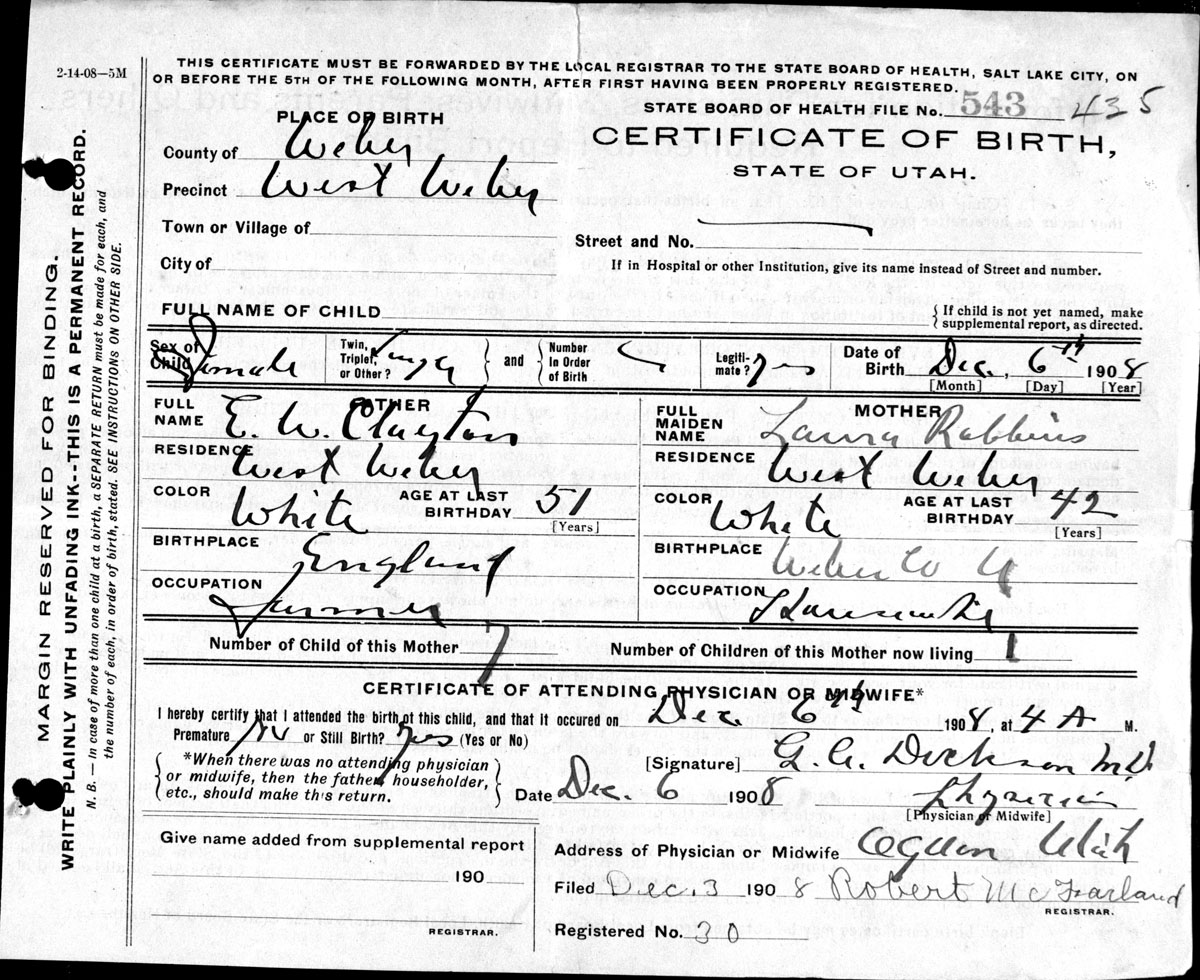 2-14-08—5M
THIS CERTIFICATE MUST BE FORWARDED BY THE LOCAL REGISTRAR TO THE STATE BOARD OF HEALTH, SALT LAKE CITY, ON
OR BEFORE THE 5TH OF THE FOLLOWING MONTH, AFTER FIRST HAVING BEEN PROPERLY REGISTERED.
STATE BOARD OF HEALTH FILE No. 543 435
PLACE OF BIRTH
CERTIFICATE OF BIRTH,
STATE OF UTAH.
County of Weber
Precinct West Weber
Town or Village of
Street and No.
City of
If in Hospital or other Institution, give its name instead of Street and number.
FULL NAME OF CHILD
{If child is not yet named, make
supplemental report, as directed.
Sex of Child Female
Twin, Triplet, or Other?
and
Number In Order of Birth
Legiti-mate? yes
Date of Birth Dec. 6th 1908
[Month] [Day] [Year]
FATHER
FULL NAME E. W. Clayton
RESIDENCE West Weber
COLOR White
AGE AT LAST BIRTHDAY 51
[Years]
BIRTHPLACE England
OCCUPATION Farmer
MOTHER
FULL MAIDEN NAME Laura Robbins
RESIDENCE West Weber
COLOR White
AGE AT LAST BIRTHDAY 42
[Years]
BIRTHPLACE Weber Co U
OCCUPATION Housewife
Number of Child of this Mother 7
Number of Children of this Mother now living 1
CERTIFICATE OF ATTENDING PHYSICIAN OR MIDWIFE*
I hereby certify that I attended the birth of this child, and that it occured on Dec. 6th 1908, at 4 A M.
Premature No or Still Birth? Yes (Yes or No)
{*When there was no attending physician
or midwife, then the father, householder,
etc., should make this return.}
[Signature] G. A. Dickson M.D.
Date Dec. 6 1908
Physician
[Physician or Midwife]
Give name added from supplemental report
190
REGISTRAR.
Address of Physician or Midwife Ogden Utah
Filed Dec. 3 1908 Robert McFarland
REGISTRAR.
Registered No. 30
MARGIN RESERVED FOR BINDING.
WRITE PLAINLY WITH UNFADING INK--THIS IS A PERMANENT RECORD.
N. B.—In case of more than one child at a birth, a SEPARATE RETURN must be made for each, and
the number of each, in order of birth, stated. SEE INSTRUCTIONS ON OTHER SIDE.